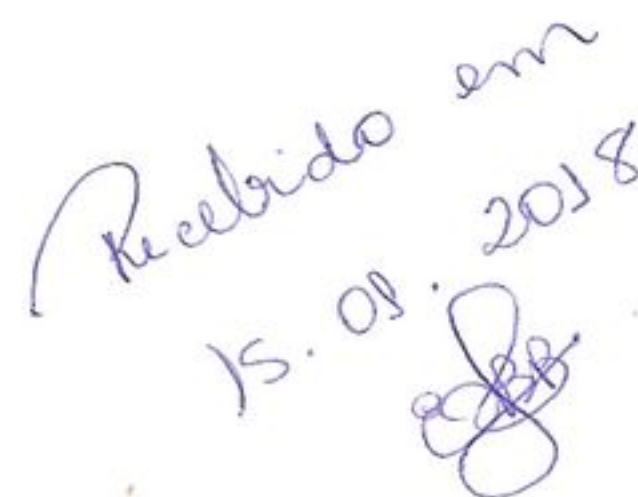 Recebido em
15. 01. 2018